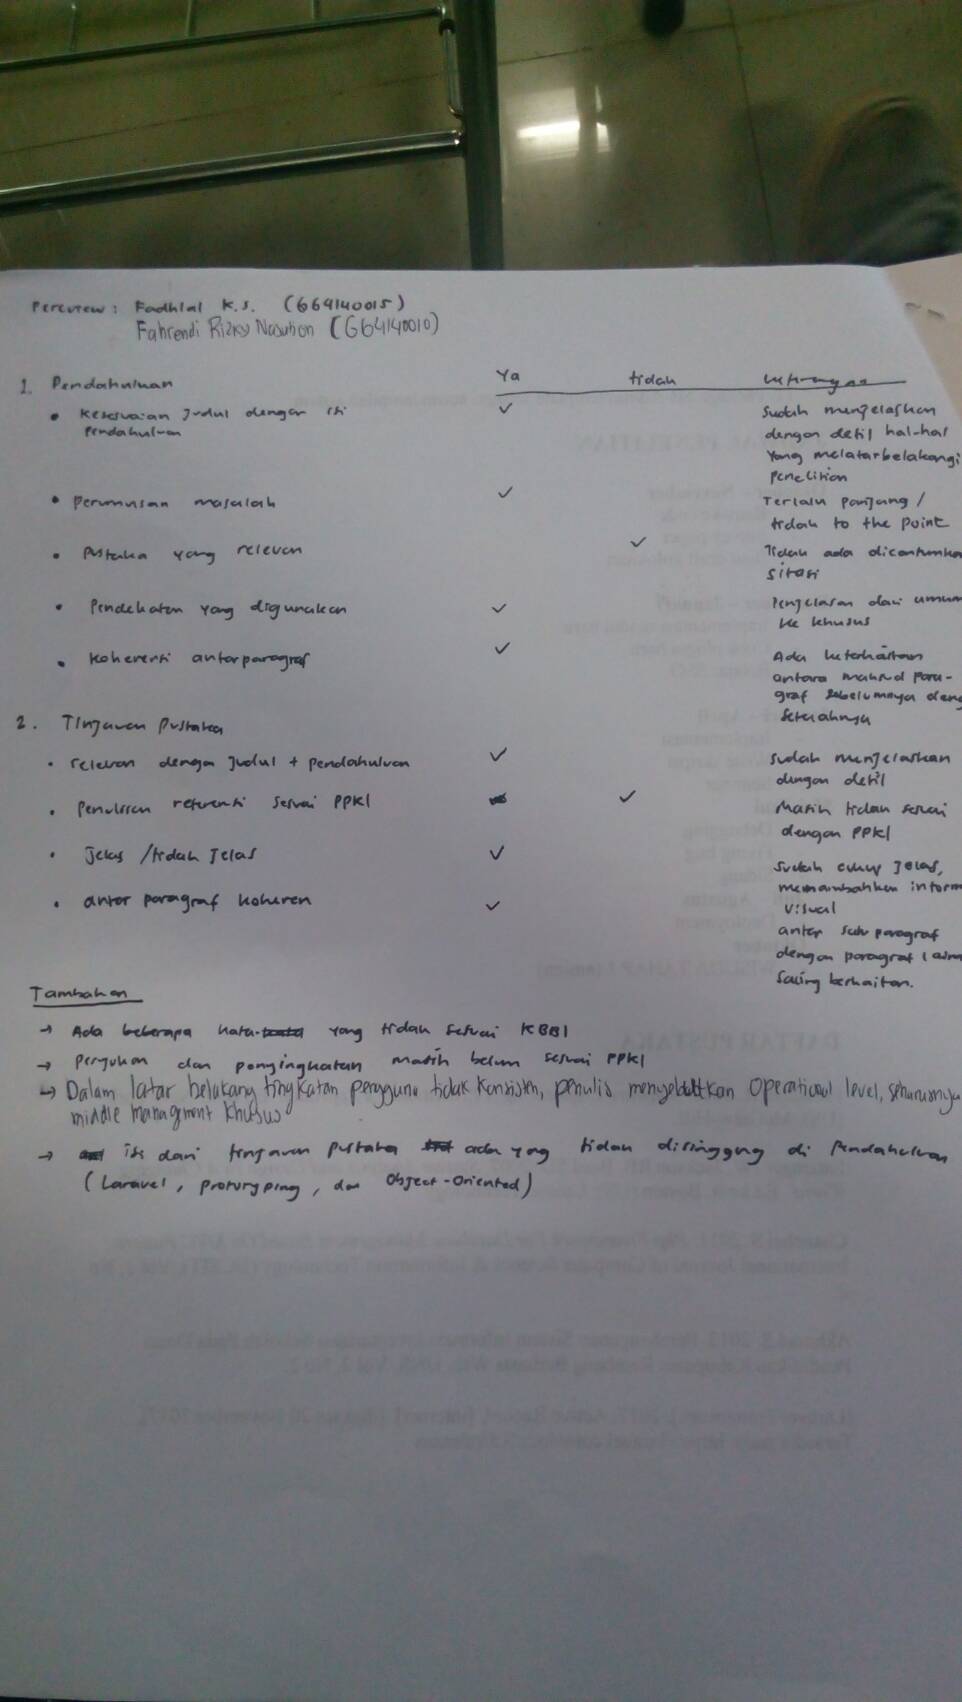 Pereview : Fadhlal K.S. (G64140015)
Fahrendi Rizky Nasution (G64140010)
Ya tidak keterangan
1. Pendahuluan
• Kesesuaian judul dengan isi pendahuluan ✓ Sudah menjelaskan
dengan detil hal-hal
yang melatarbelakangi
penelitian
• perumusan masalah ✓ Terlalu panjang /
tidak to the point
• Pustaka yang relevan ✓ Tidak ada dicantumkan
sitasi
• Pendekatan yang digunakan ✓ Penjelasan dari umum
ke khusus
• Koherensi antarparagraf ✓ Ada keterkaitan
antara maksud para-
graf sebelumnya deng
setelahnya
2. Tinjauan Pustaka
• relevan dengan judul + pendahuluan ✓ sudah menjelaskan
dengan detil
• Penulisan referensi sesuai PPKI ✓ Masih tidak sesuai
dengan PPKI
• Jelas / tidak jelas ✓ Sudah cukup jelas,
menambahkan inform
visual
• antar paragraf koheren ✓ antar satu paragraf
dengan paragraf lain
saling berkaitan.
Tambahan
→ Ada beberapa kata yang tidak sesuai KBBI
→ Perujukan dan penyingkatan masih belum sesuai PPKI
→ Dalam latar belakang tingkatan pengguna tidak konsisten, penulis menyebutkan operational level, seharusnya
middle managment khusus
→ isi dari tinjauan pustaka ada yang tidak disinggung di Pendahuluan
(Laravel, prototyping, dan Object-Oriented)